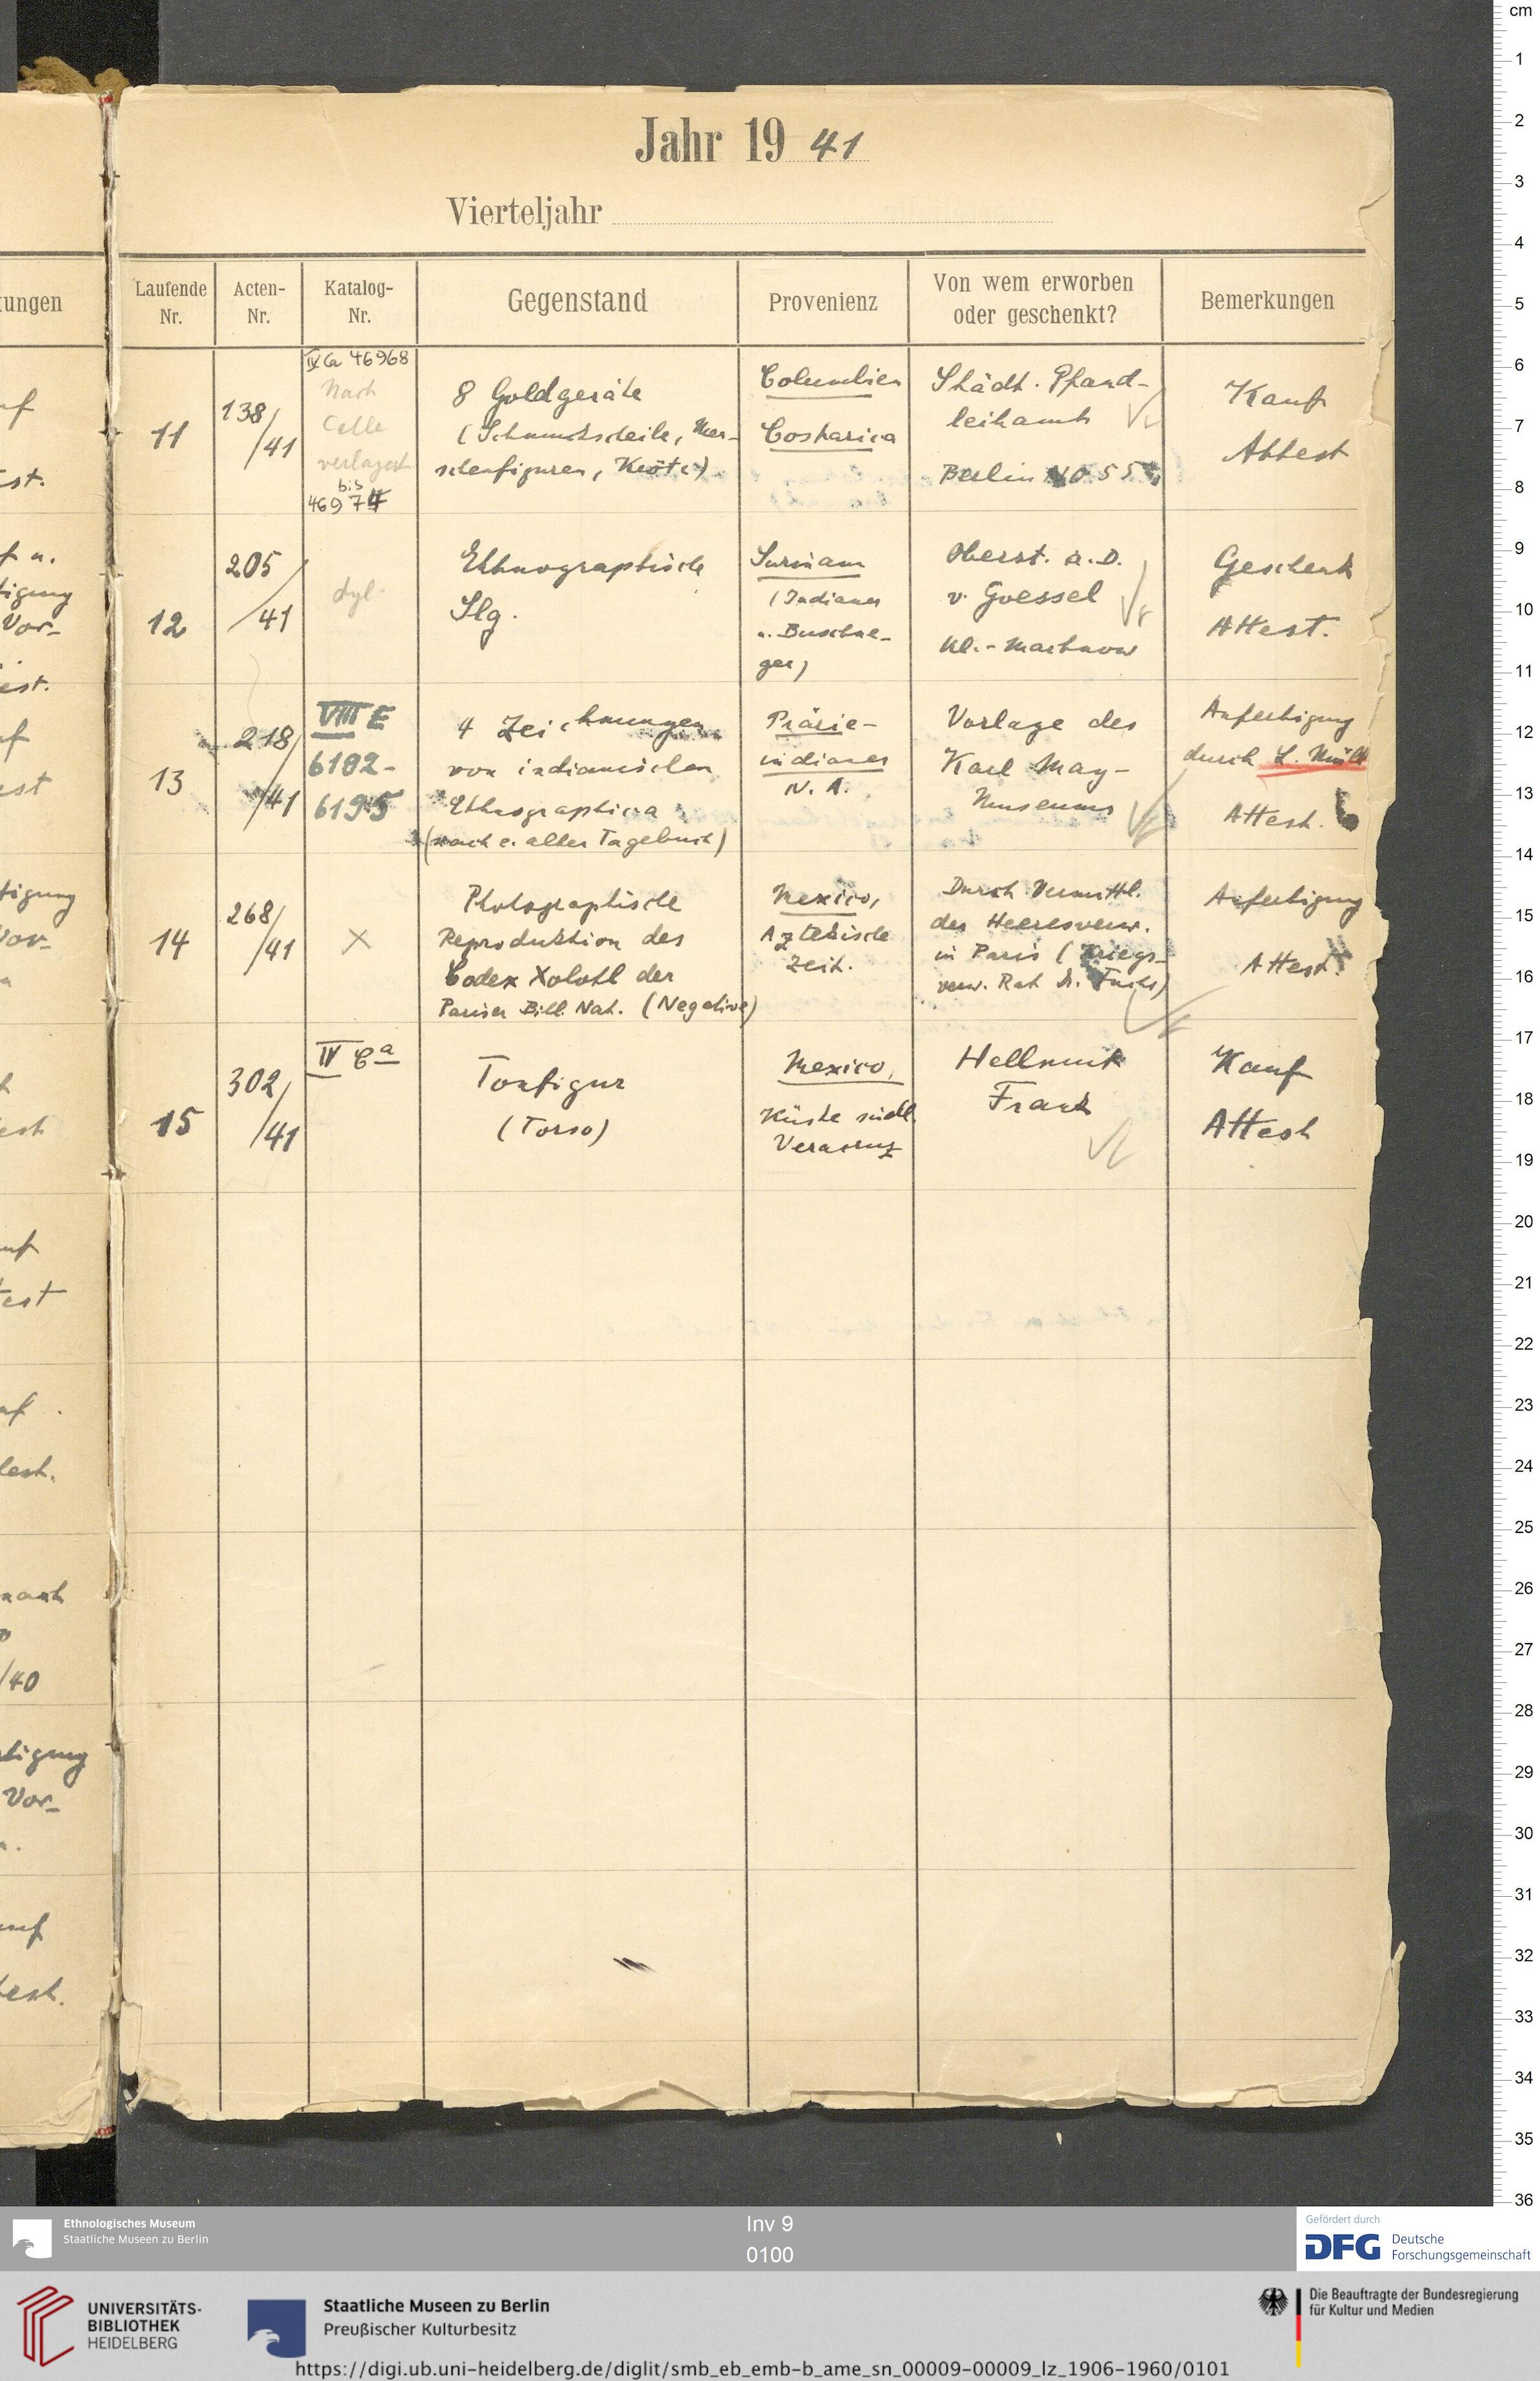 Jahr 1941
Vierteljahr
Laufende Nr.
Acten-Nr.
Katalog-Nr.
Gegenstand
Provenienz
Von wem erworben oder geschenkt?
Bemerkungen
11
138/41
IV Ca 46968
Nach
Celle
verlagert
bis
46974
8 Goldgeräte
(Schmuckscheibe, Men-
schenfiguren, Kröte)
Columbien
Costarica
Städt. Pfand-
leihamt
Berlin NO 55
Kauf
Attest
12
205/41
dgl.
Ethnographische
Slg.
Surinam
(Indianer
u. Buschne-
ger)
Oberst. a.D.
v. Goessel
Kl.-Machnow
Geschenk
Attest.
13
218/41
VIII E
6182-
6195
4 Zeichnungen
von indianischen
Ethnographica
(nach e. alten Tagebuch)
Prärie-
indianer
N. A.
Vorlage des
Karl May-
Museums
Anfertigung
durch L.
Attest.
14
268/41
X
Photographische
Reproduktion des
Codex Xolotl der
Pariser Bibl. Nat. (Negative)
Mexico,
Aztekische
Zeit.
Durch Vermittl.
der Heeresverw.
in Paris (Kriegs-
verw. Rat Dr. Fuchs)
Anfertigung
Attest.
15
302/41
IV Ca
Tonfigur
(Torso)
Mexico,
Küste südl.
Veracruz
Hellmuth
Frank
Kauf
Attest
kungen
st.
f u.
tigung
Vor-
est.
f
est
tigung
Vor-
est
uf
est
uf.
test.
nach
/40
tigung
Vor-
uf
est.
cm
1
2
3
4
5
6
7
8
9
10
11
12
13
14
15
16
17
18
19
20
21
22
23
24
25
26
27
28
29
30
31
32
33
34
35
36
Ethnologisches Museum
Staatliche Museen zu Berlin
Inv 9
0100
Gefördert durch
DFG Deutsche
Forschungsgemeinschaft
UNIVERSITÄTS-
BIBLIOTHEK
HEIDELBERG
Staatliche Museen zu Berlin
Preußischer Kulturbesitz
Die Beauftragte der Bundesregierung
für Kultur und Medien
https://digi.ub.uni-heidelberg.de/diglit/smb_eb_emb-b_ame_sn_00009-00009_lz_1906-1960/0101